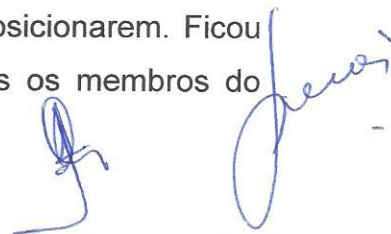 osicionarem. Ficou
s os membros do